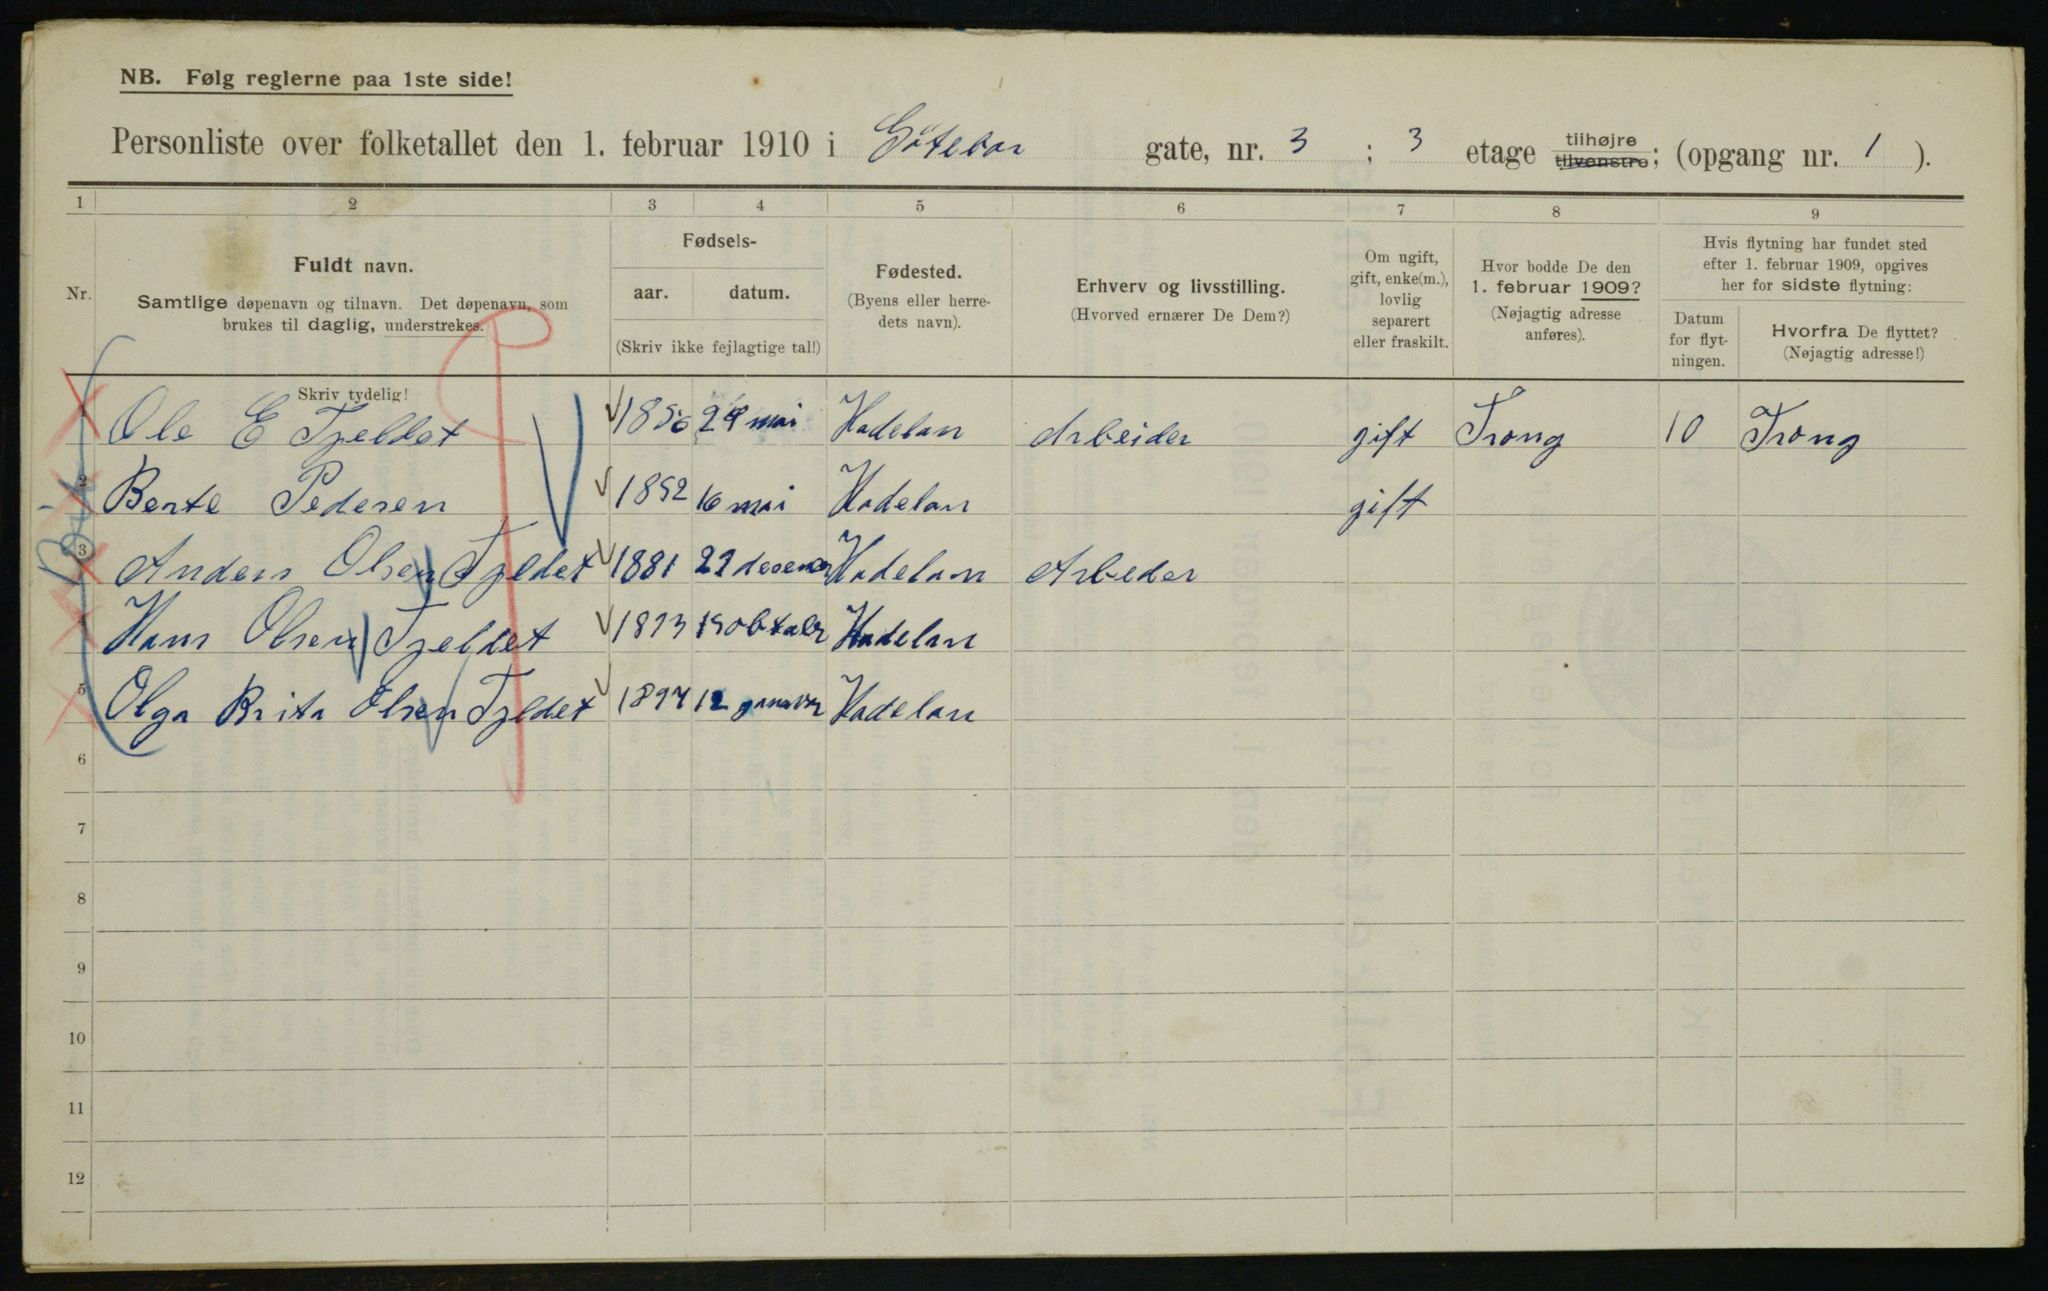 NB. Følg reglerne paa 1ste side!
Personliste over folketallet den 1. februar 1910 i Götebor gate, nr. 3 ; 3 etage tilhøjre tilvenstre; (opgang nr. 1 ).
1 2 3 4 5 6 7 8 9
Nr.
Fuldt navn.
Samtlige døpenavn og tilnavn. Det døpenavn, som
brukes til daglig, understrekes.
Skriv tydelig!
Fødsels-
aar. datum.
(Skriv ikke fejlagtige tal!)
Fødested.
(Byens eller herre-
dets navn).
Erhverv og livsstilling.
(Hvorved ernærer De Dem?)
Om ugift,
gift, enke(m.),
lovlig
separert
eller fraskilt.
Hvor bodde De den
1. februar 1909?
(Nøjagtig adresse
anføres).
Hvis flytning har fundet sted
efter 1. februar 1909, opgives
her for sidste flytning:
Datum
for flyt-
ningen.
Hvorfra De flyttet?
(Nøjagtig adresse!)
1 Ole E Fjeldet 1856 29 mai Hadelan Arbeider gift Trong 10 Trong
2 Berte Pedersen 1852 16 mai Hadelan gift
3 Anders Olsen Fjeldet 1881 Hadelan Arbeder
4 Hans Olsen Fjeldet 1893 Hadelan
5 Olga Brita Olsen Fjeldet 1897 12 Hadelan
6
7
8
9
10
11
12